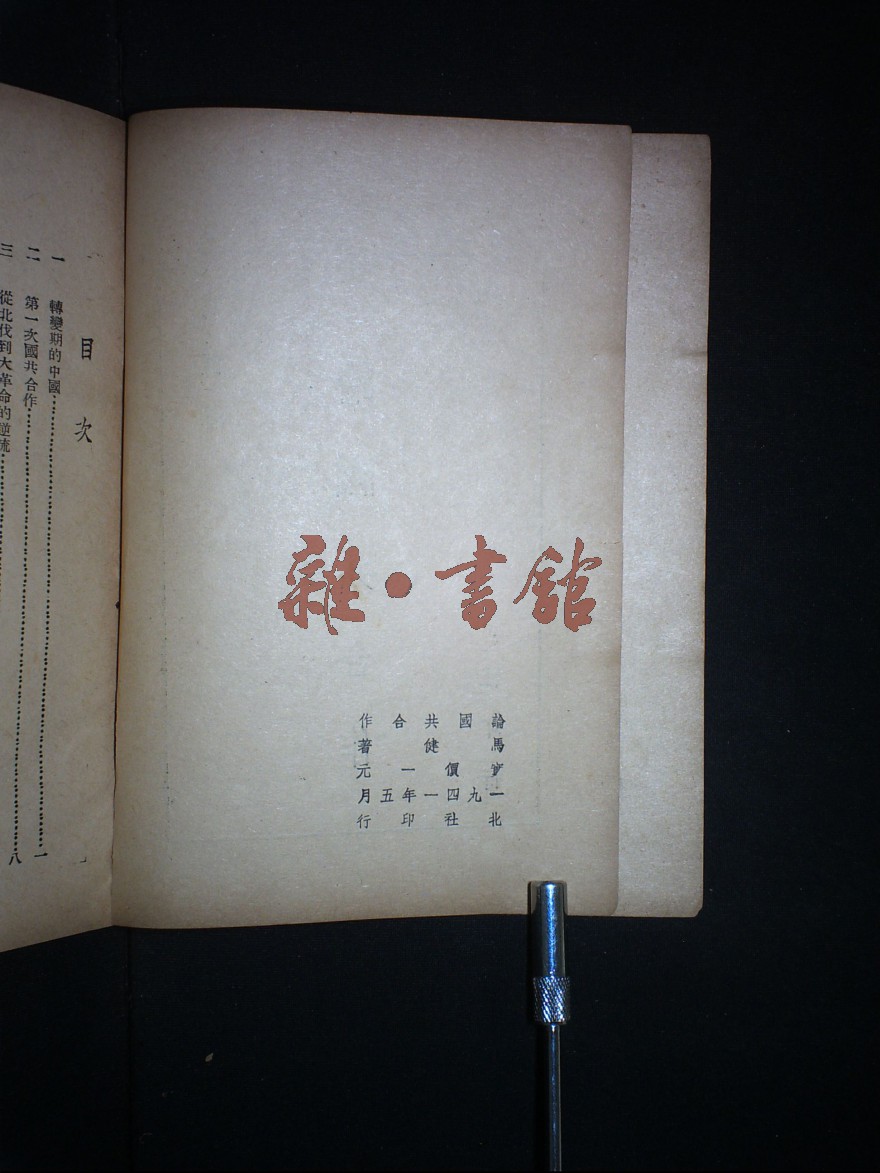 雜·書館
論國共合作
馬健著
實價一元
一九四一年五月
北社印行
目次
一 轉變期的中國……一
二 第一次國共合作……八
三 從北伐到大革命的逆流……